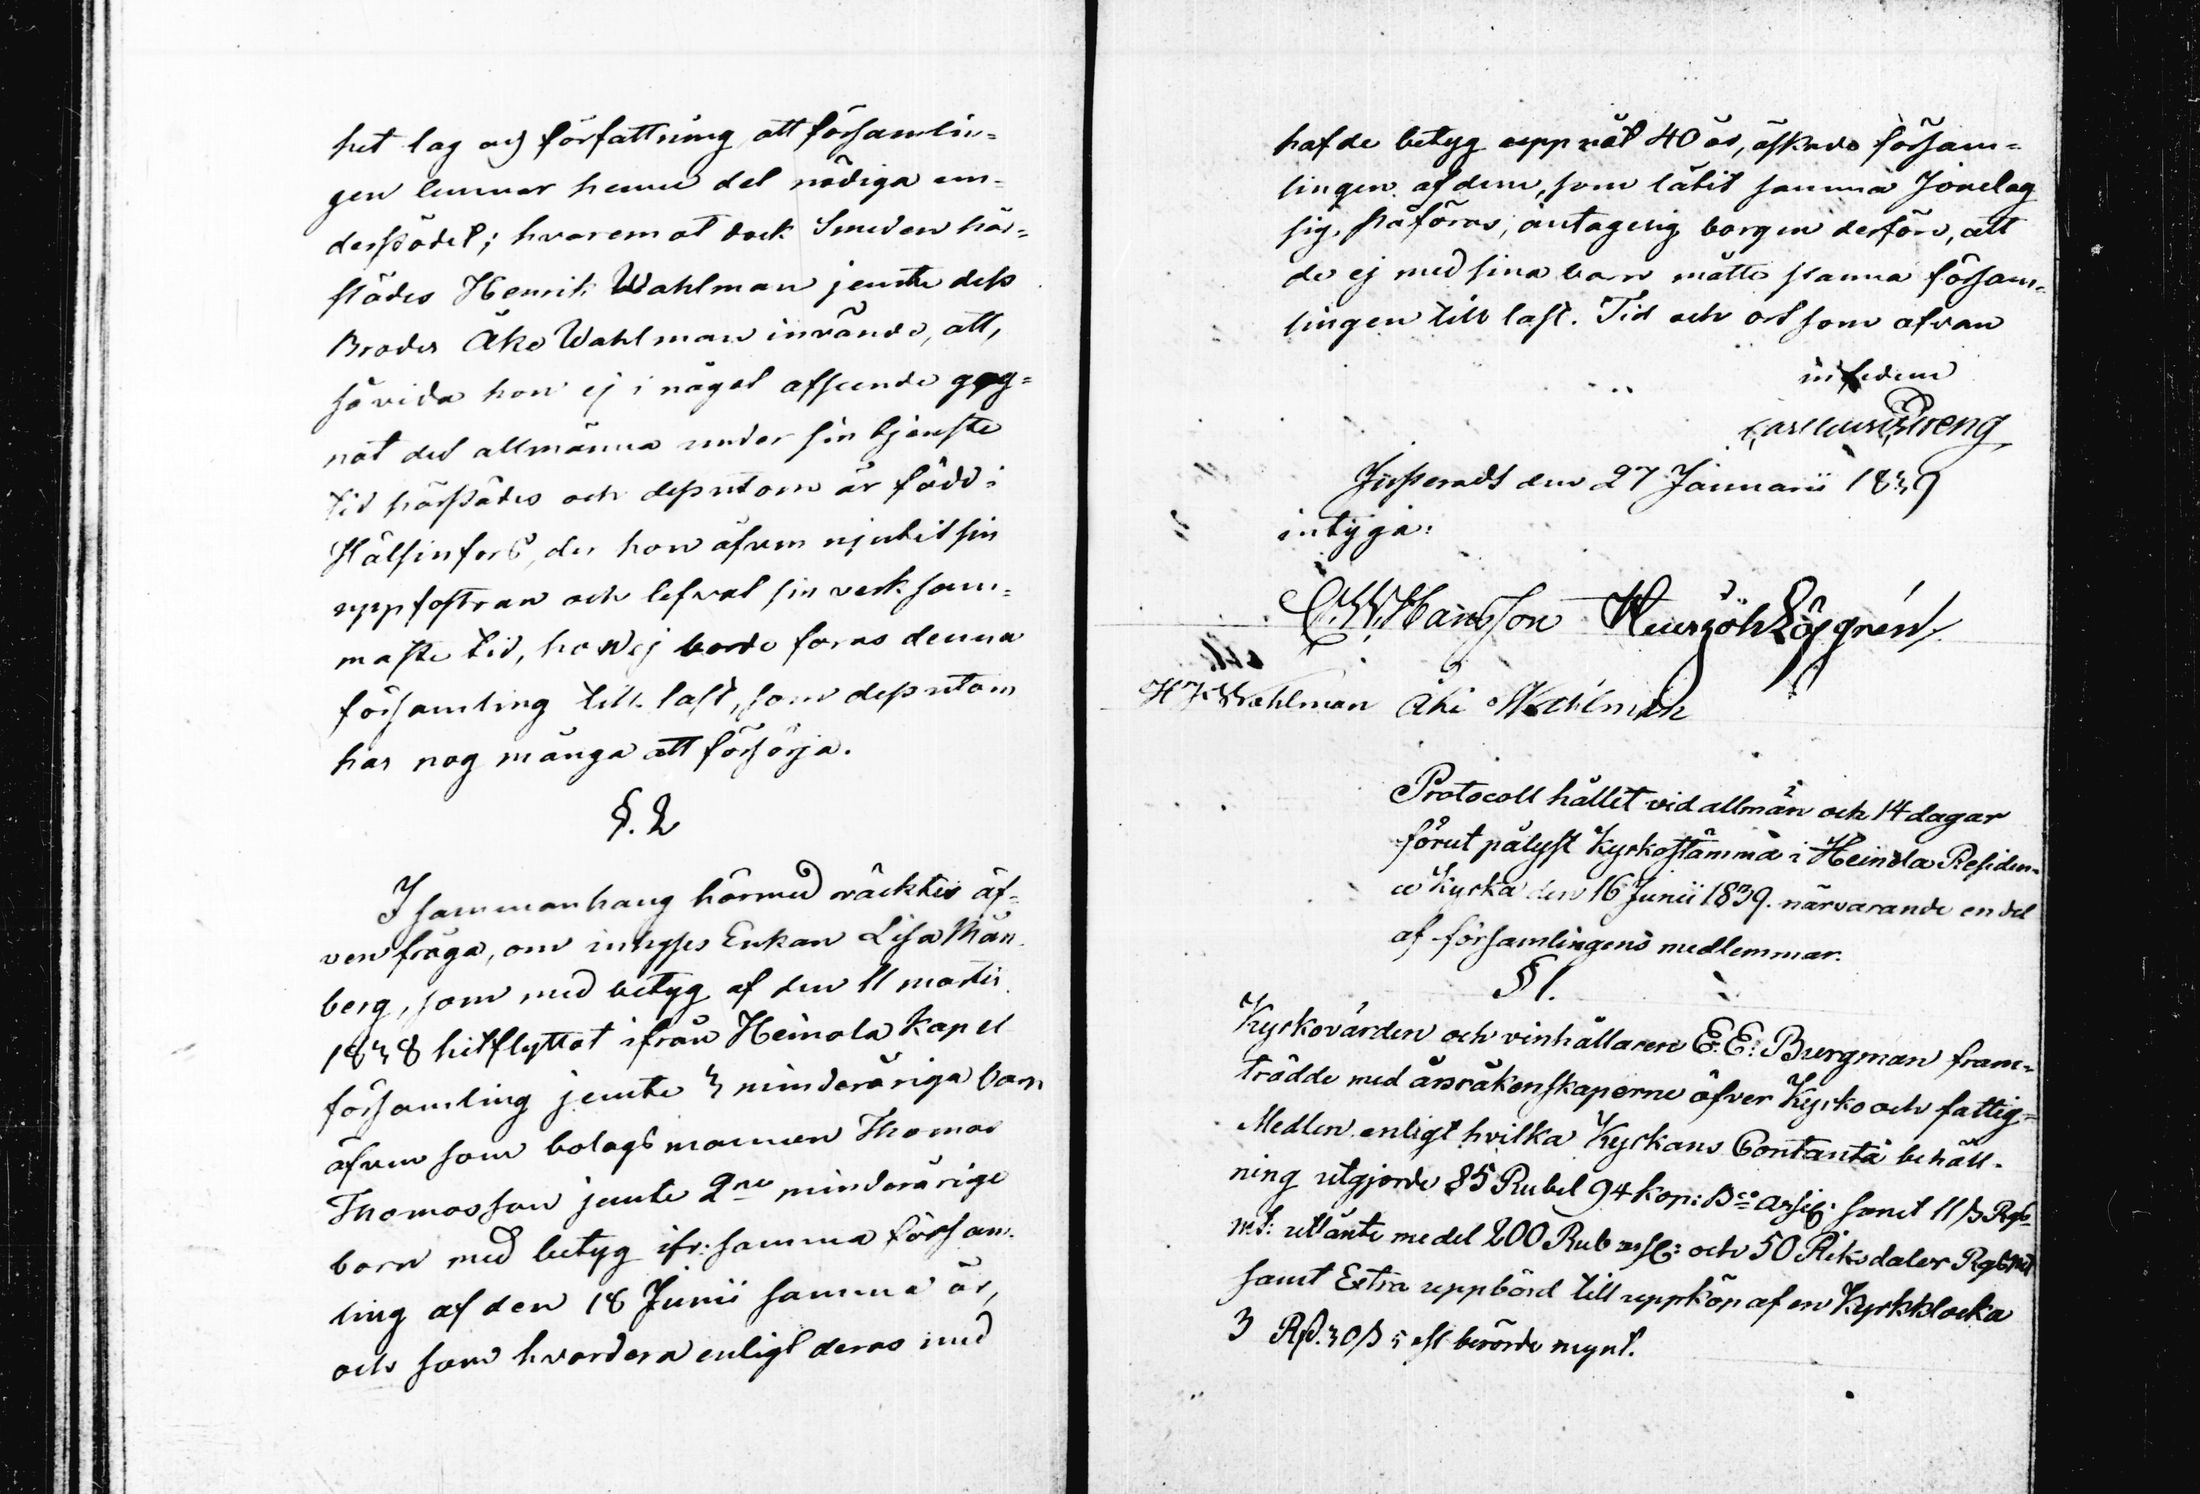 het lag och författning att församlin=
gen lemnar henne det nödiga un=
derstödet; hvaremot dock Smeden här=
städes Henrik Wahlman jemte dess
Broder Åke Wahlman invände, att,
så vida hon ej i något afseende gag=
nat det allmänna under sin tjenste
tid härstädes och dessutom är född i
Hälsinfors, der hon äfven njutit sin
uppfostran och lefvat sin verksam=
maste tid, hon ej borde föras denna
församling till last, som dessutom
har nog många att försörja.
§. 2
I sammanhang härmed väcktes äf=
ven fråga, om inhyses Enkan Lisa Män
berg, som med betyg af den 11 martii
1838 hitflyttat ifrån Heinola Kapel
församling jemte 3 minderåriga barn
äfven som bolagsmannen Thomas
Thomasson jemte 2ne minderårige
barn med betyg ifr: samma försam.
ling af den 18 Junii samma år,
och som hvardera enligt deras med
hafde betyg uppnåt 40 år, äskade försam=
lingen af dem, som låtit samma Jonelag
sig påföras, antagelig borgen derföre, att
de ej med sina barn måtte stanna försam=
lingen till last. Tid och ort som ofvan
in fidem
Justeradt den 27 Januarii 1839
intyga:
C. W. Hansson Henr Joh Löfgrén
H J Wahlman Åke Wahlman
Protocoll hållet vid allmän och 14 dagar
förut pålyst Kyrkostämma i Heinola Residen=
ce Kyrka den 16 Junii 1839. närvarande en del
af församlingens medlemmar.
§ 1.
Kyrkovärden och vinhållaren E. E: Burgman fram=
trädde med årsräkenskaperne öfver Kyrko och fattig=
Medlen enligt hvilka Kyrkans Contanta behåll=
ning utgjorde 85 Rubel 94 kop: Bco assig: samt 11 s Rgs
mt: utlånte medel 200 Rub ass: och 50 Riksdaler Rgs mt
samt Extra uppbörd till uppköp af en Kyrkklocka
3 Rd. 30 s berörde mynt.